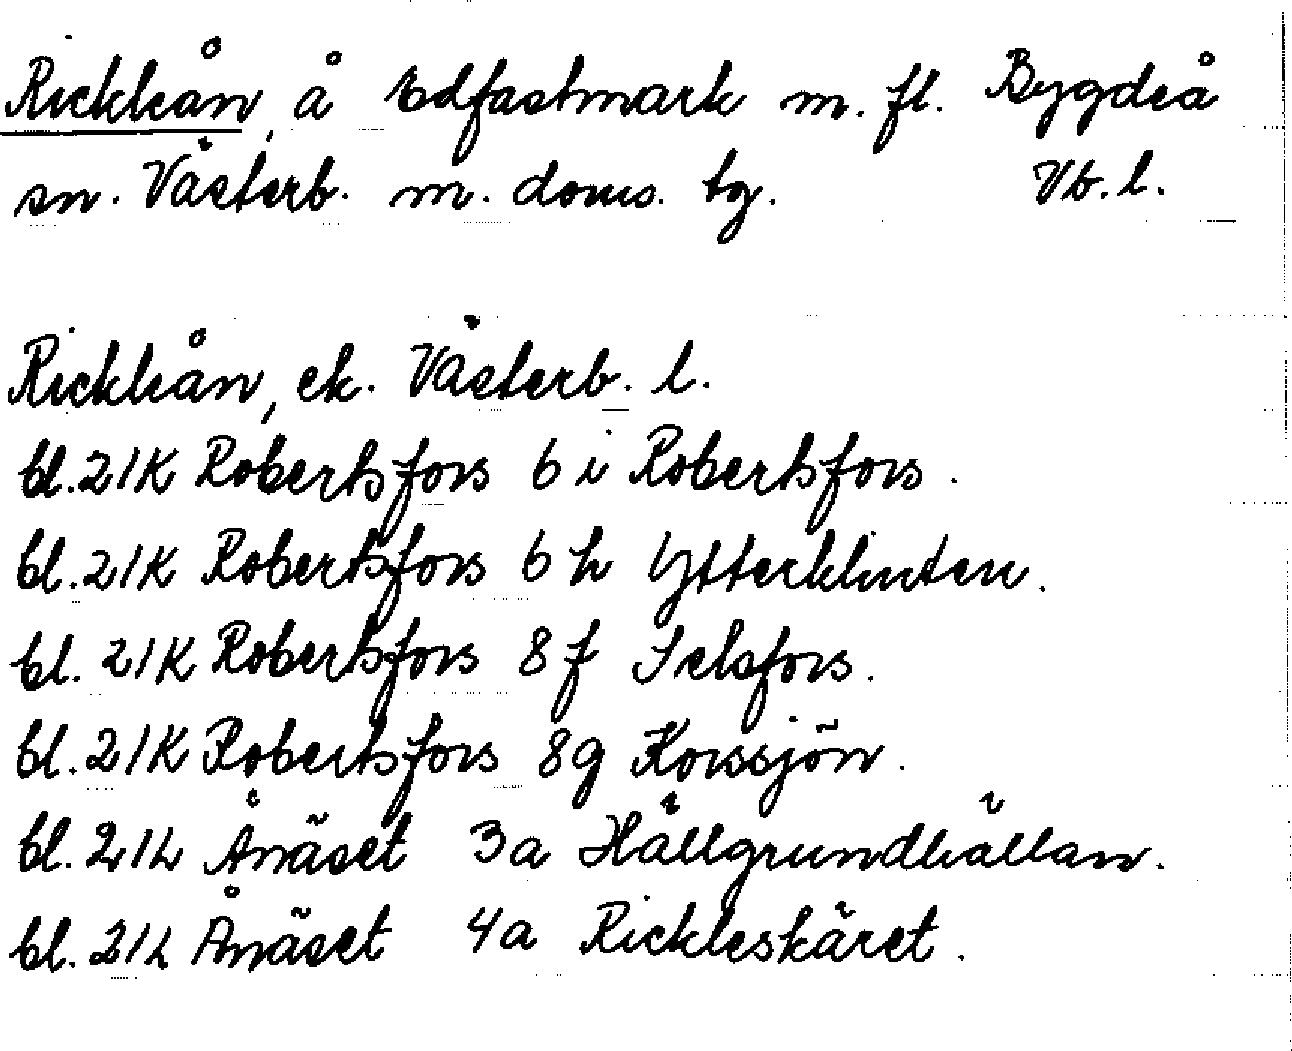 Rickleån, å Edfastmark m. fl. Bygdeå
sn. Västerb. m. doms. tg. Vb. l.
Rickleån, ek. Västerb. l.
bl. 21K Robertsfors 6 i Robertsfors.
bl. 21K Robertsfors 6 h Ytterklinten.
bl. 21K Robertsfors 8 f Selsfors.
bl. 21K Robertsfors 8g Korssjön.
bl. 21L Ånäset 3a Hällgrundhällan.
bl. 21L Ånäset 4a Rickleskäret.